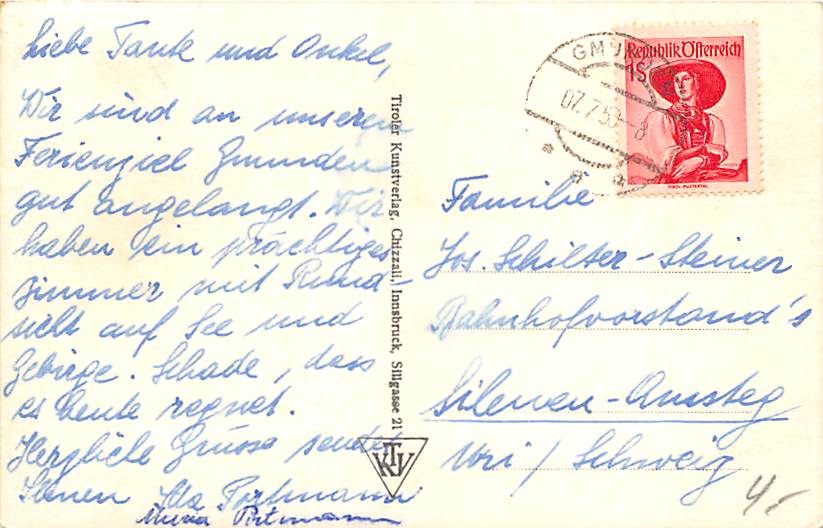 Liebe Tante und Onkel,
Wir sind an unserem
Ferienziel Gmunden
gut angelangt. Wir
haben ein prächtiges
Zimmer mit Rund-
sicht auf See und
Gebirge. Schade, dass
es heute regnet.
Herzliche Grüsse senden
Ihnen Ida Portmann
Maria Portmann
Tiroler Kunstverlag, Chizzali, Innsbruck, Sillgasse 21
KTV
Republik Österreich
1S
TIROL PUSTERTAL
07.7.53-8
Familie
Jos. Schilter-Steiner
Bahnhofvorstand's
Silenen-Amsteg
Uri / Schweiz
4.-